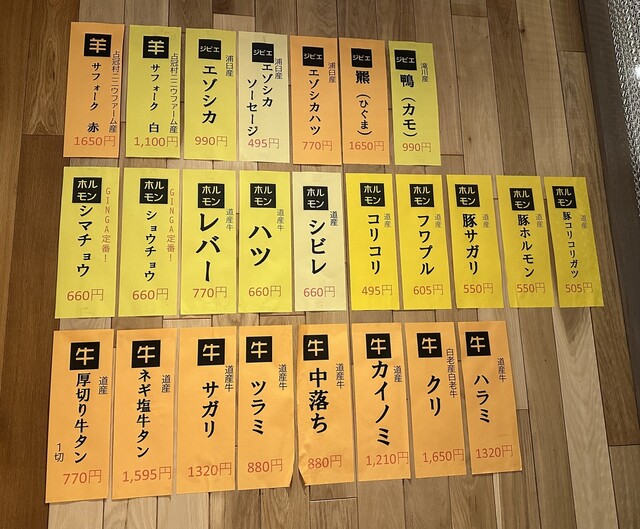 羊
占冠村ニニウファーム産
サフォーク 赤
1650円
羊
占冠村ニニウファーム産
サフォーク 白
1,100円
ジビエ
浦臼産
エゾシカ
990円
ジビエ
浦臼産
エゾシカ
ソーセージ
495円
ジビエ
浦臼産
エゾシカハツ
770円
ジビエ
羆(ひぐま)
1650円
ジビエ
滝川産
鴨(カモ)
990円
ホル
モン
GINGA定番!
シマチョウ
660円
ホル
モン
GINGA定番!
ショウチョウ
660円
ホル
モン
道産牛
レバー
770円
ホル
モン
道産牛
ハツ
660円
ホル
モン
道産牛
シビレ
660円
ホル
モン
道産
コリコリ
495円
ホル
モン
道産
フワプル
605円
ホル
モン
道産
豚サガリ
550円
ホル
モン
道産
豚ホルモン
550円
ホル
モン
道産
豚コリコリガツ
505円
牛
道産
厚切り牛タン
1切
770円
牛
道産
ネギ塩牛タン
1,595円
牛
道産牛
サガリ
1320円
牛
道産牛
ツラミ
880円
牛
道産牛
中落ち
880円
牛
道産
カイノミ
1,210円
牛
白老産白老牛
クリ
1,650円
牛
道産牛
ハラミ
1320円